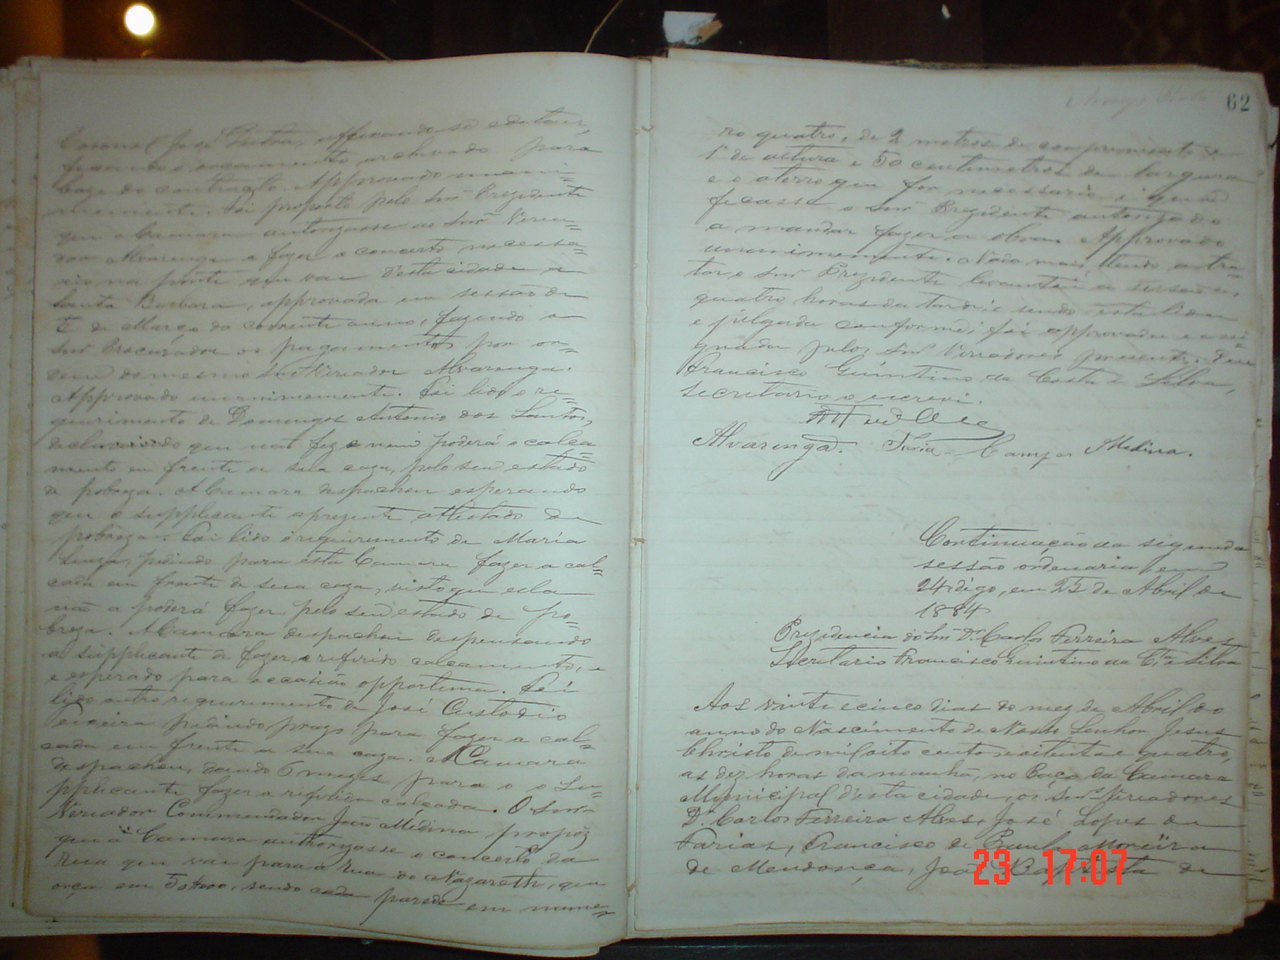 Coronel José
ficando o orçamento archivado para
baze do contracto. Approvado unani=
memente. Foi proposto pelo Snr Prezidente
que a Camara autorizasse ao Snr Verea=
dor Alvarenga a fazer o concerto necessa=
rio na ponte que vae desta cidade a
Santa Barbara, approvada em sessão de
5 de Março do corrente anno, fazendo o
Snr Procurador os pagamentos por or=
dem do mesmo Snr Vereador Alvarenga.
Approvado unanimemente. Foi lido o re=
querimento de Domingos Antonio dos Santos,
declarando que não fez e nem poderá o calça=
mento em frente a sua caza, pelo seu estado
de pobreza. A Camara despachou esperando
que o supplicante aprezente attestado de
pobreza. Foi lido o requerimento de Maria
Luiza, pedindo para esta Camara fazer a cal=
çada em frente de sua caza, visto que ella
não a poderá fazer, pelo seu estado de po=
breza. A Camara despachou despensando
a supplicante de fazer o referido calçamento, e
e esperado para occazião opportuna. Foi
lido outro requerimento de José Custodio
Teixeira pedindo prazo para fazer a cal=
çada em frente a sua caza. A Camara
despachou, dando 6 mezes para o o Su=
pplicante fazer a referida calçada. O Snr
Vereador Commendador João Medina propoz
que a Camara authorizasse o concerto da
rua que vai para a rua do Nazareth, que
orça em sendo cada parede em nume=
62
ro quatro, de 2 metros de comprimento e
1 de altura e 50 centimetros de largura
e o aterro que for necessario e que
ficasse o Snr Prezidente autorizado
a mandar fazer a obra. Approvado
unanimemente. Nada mais tendo a tra=
tar, o Snr Prezidente levantou a sessão as
quatro horas da tarde, e sendo esta lida
e julgada conforme, foi approvada e assi=
gnada pelos Snrs Vereadores prezentes. Eu
Francisco Quintino da Costa e Silva,
secretario o escrevi.
Alvarenga. Faria Campos Medina.
Continuação da segunda
sessão ordenaria em
24 digo, em 25 de Abril de
1884
Prezidencia do Snr Dr. Carlos Ferreira Alves
Secretario Francisco Quintino da Cta e Silva
Aos vinte e cinco dias do mez de Abril do
anno do Nascimento de Nosso Senhor Jesus
Christo de mil oito cento e oitenta e quatro,
as dez horas da manhã, no Paço da Camara
Municipal desta cidade, os Snrs Vereadores
Dr. Carlos Ferreira Alves, José Lopes de
Farias, Francisco de Paula Moreira
de Mendonça, João Baptista de
23 17:07